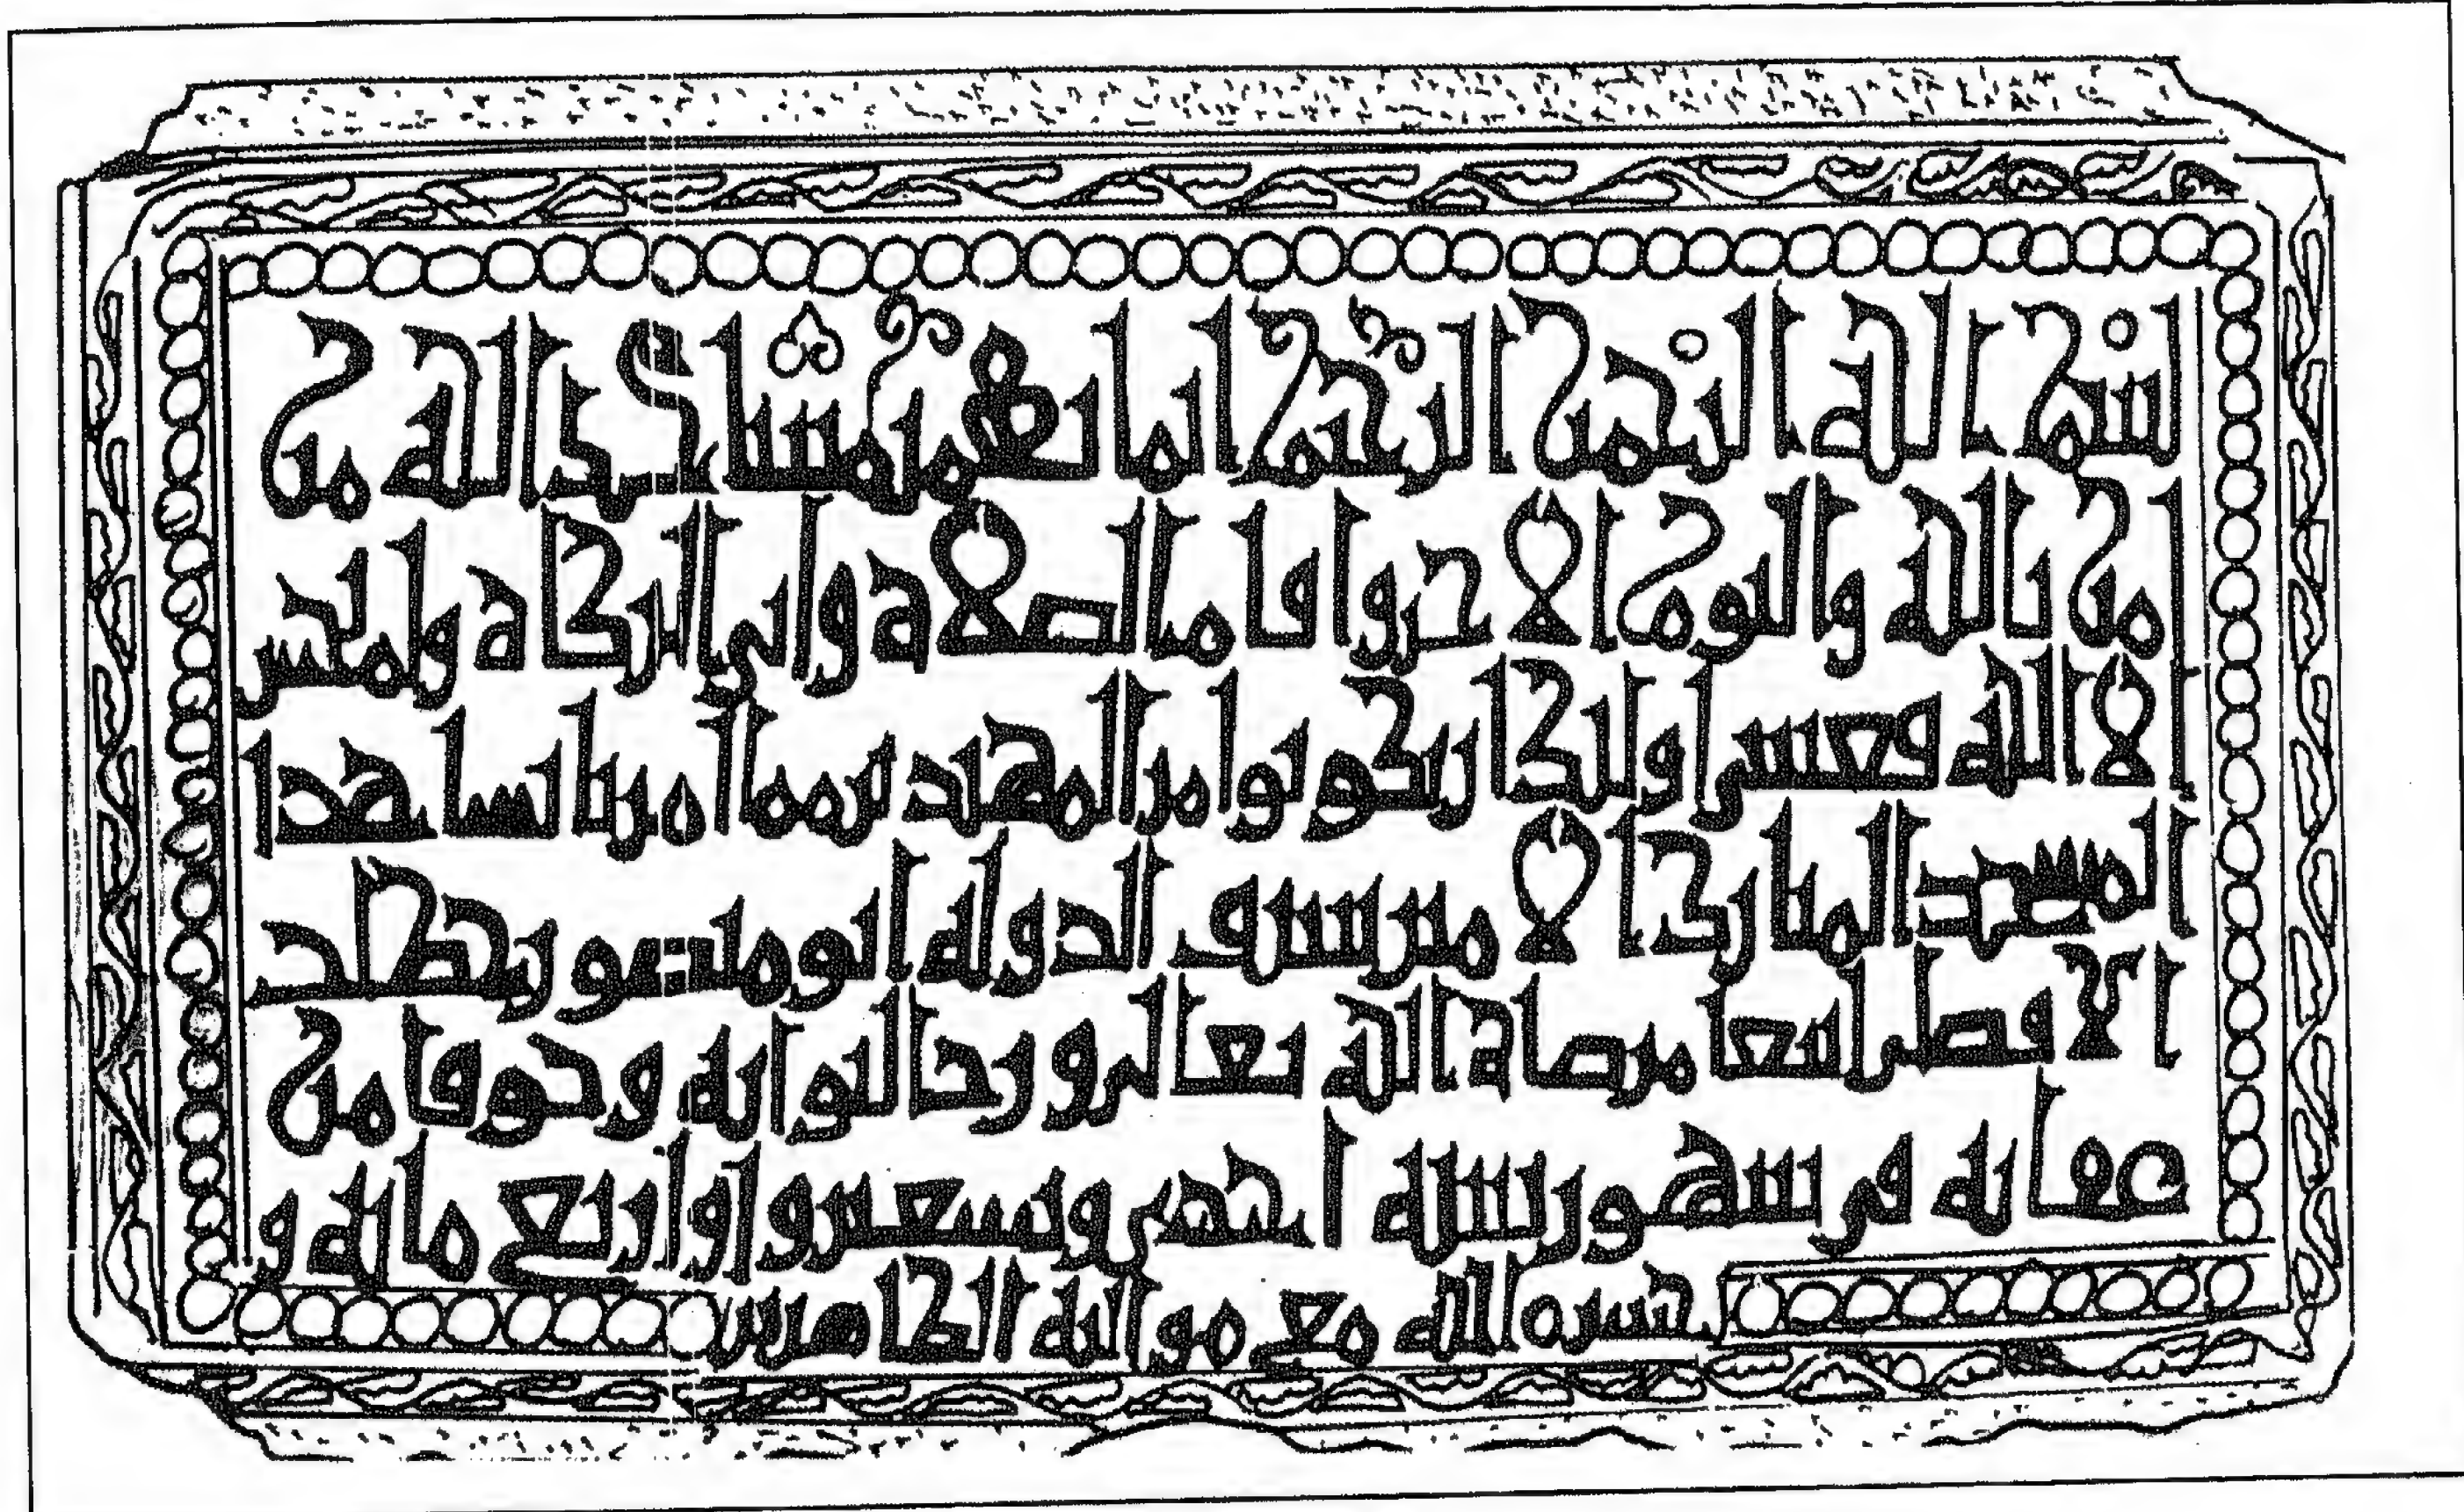 بسم الله الرحمن الرحيم انما يعمر مساجد الله من
امن بالله واليوم الاخر واقام الصلاة واتى الزكاة ولم يخش
الا الله فعسى اولئك ان يكونوا من المهتدين مما امر بانشا هذا
المسجد المبارك الامير سيف الدوله ابو منصور
الافضلي ابتغا مرضاة الله تعالى ورجا ثوابه وخوفا من
عقابه في شهور سنه احدى وتسعين واربع مايه و
حشره الله مع مواليه الطاهرين